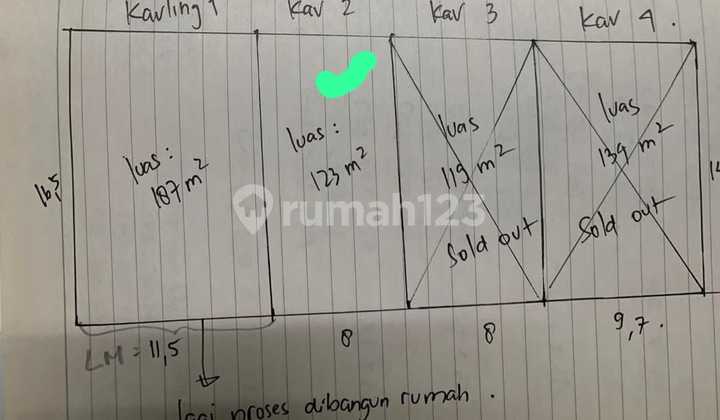 Kavling 1
Kav 2
Kav 3
Kav 4.
luas:
187 m²
luas:
123 m²
luas
119 m²
Sold out
luas
134 m²
Sold out
16,5
rumah123
LM = 11,5
8
8
9,7.
lagi proses dibangun rumah.